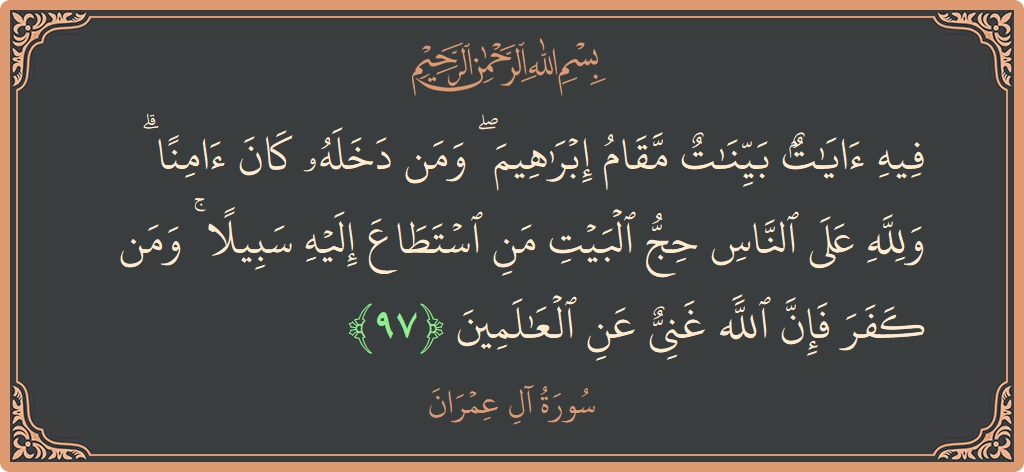 بِسْمِ اللَّهِ الرَّحْمَٰنِ الرَّحِيمِ
فِيهِ ءَايَٰتٌۢ بَيِّنَٰتٌ مَّقَامُ إِبْرَٰهِيمَ ۖ وَمَن دَخَلَهُۥ كَانَ ءَامِنًا ۗ
وَلِلَّهِ عَلَى ٱلنَّاسِ حِجُّ ٱلْبَيْتِ مَنِ ٱسْتَطَاعَ إِلَيْهِ سَبِيلًا ۚ وَمَن
كَفَرَ فَإِنَّ ٱللَّهَ غَنِىٌّ عَنِ ٱلْعَٰلَمِينَ ﴿٩٧﴾
سُورَةُ آلِ عِمْرَانَ